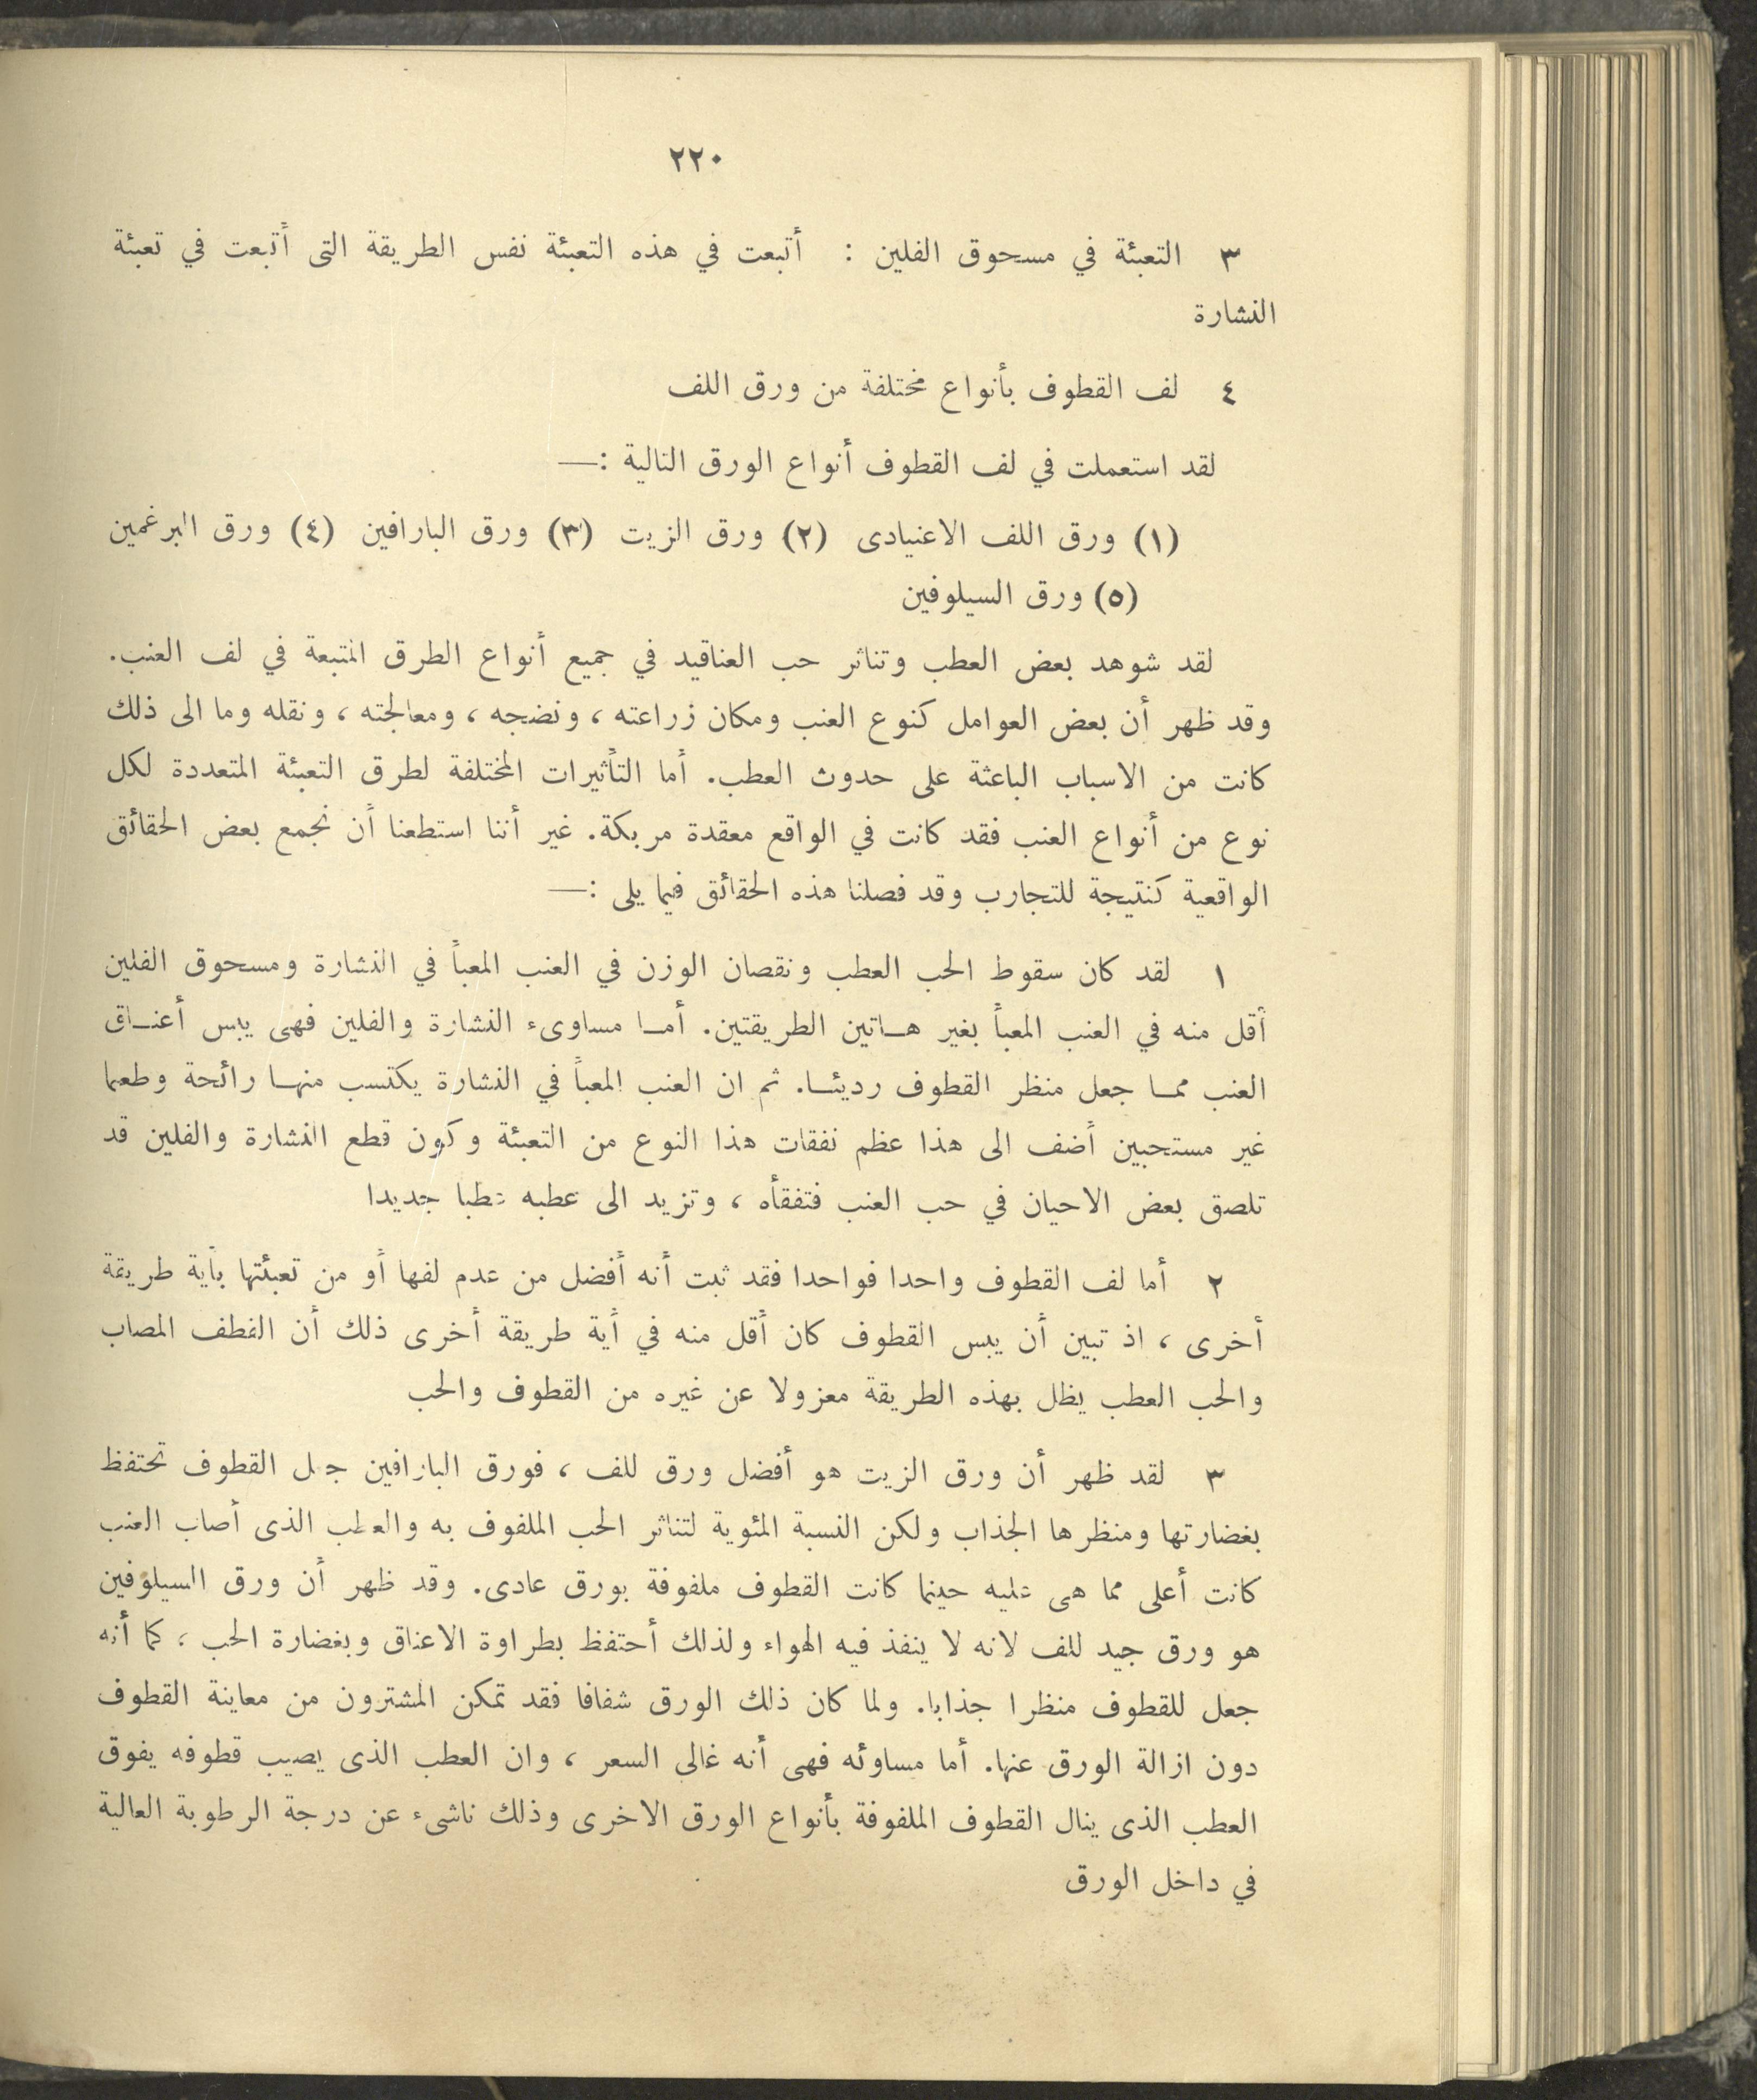 ٢٢٠
٣ التعبئة في مسحوق الفلين : أتبعت في هذه التعبئة نفس الطريقة التى أتبعت في تعبئة
النشارة
٤ لف القطوف بأنواع مختلفة من ورق اللف
لقد استعملت في لف القطوف أنواع الورق التالية :—
(١) ورق اللف الاعتيادى (٢) ورق الزيت (٣) ورق البارافين (٤) ورق البرغمين
(٥) ورق السيلوفين
لقد شوهد بعض العطب وتناثر حب العناقيد في جميع أنواع الطرق المتبعة في لف العنب.
وقد ظهر أن بعض العوامل كنوع العنب ومكان زراعته ، ونضجه ، ومعالجته ، ونقله وما الى ذلك
كانت من الاسباب الباعثة على حدوث العطب. أما التأثيرات المختلفة لطرق التعبئة المتعددة لكل
نوع من أنواع العنب فقد كانت في الواقع معقدة مربكة. غير أننا استطعنا أن نجمع بعض الحقائق
الواقعية كنتيجة للتجارب وقد فصلنا هذه الحقائق فيما يلى :—
١ لقد كان سقوط الحب العطب ونقصان الوزن في العنب المعبأ في النشارة ومسحوق الفلين
أقل منه في العنب المعبأ بغير هـاتين الطريقتين. أمـا مساوىء النشارة والفلين فهى يبس أعنـاق
العنب ممـا جعل منظر القطوف رديئـا. ثم ان العنب المعبأ في النشارة يكتسب منهـا رائحة وطعما
غير مستحبين أضف الى هذا عظم نفقات هذا النوع من التعبئة وكون قطع النشارة والفلين قد
تلصق بعض الاحيان في حب العنب فتفقأه ، وتزيد الى عطبه عطبا جديدا
٢ أما لف القطوف واحدا فواحدا فقد ثبت أنه أفضل من عدم لفها أو من تعبئتها بأية طريقة
أخرى ، اذ تبين أن يبس القطوف كان أقل منه في أية طريقة أخرى ذلك أن القطف المصاب
والحب العطب يظل بهذه الطريقة معزولا عن غيره من القطوف والحب
٣ لقد ظهر أن ورق الزيت هو أفضل ورق للف ، فورق البارافين جعل القطوف تحتفظ
بغضارتها ومنظرها الجذاب ولكن النسبة المئوية لتناثر الحب الملفوف به والعطب الذى أصاب العنب
كانت أعلى مما هى عليه حينما كانت القطوف ملفوفة بورق عادى. وقد ظهر أن ورق السيلوفين
هو ورق جيد للف لانه لا ينفذ فيه الهواء ولذلك أحتفظ بطراوة الاعناق وبغضارة الحب ، كما أنه
جعل للقطوف منظرا جذابا. ولما كان ذلك الورق شفافا فقد تمكن المشترون من معاينة القطوف
دون ازالة الورق عنها. أما مساوئه فهى أنه غالى السعر ، وان العطب الذى يصيب قطوفه يفوق
العطب الذى ينال القطوف الملفوفة بأنواع الورق الاخرى وذلك ناشىء عن درجة الرطوبة العالية
في داخل الورق